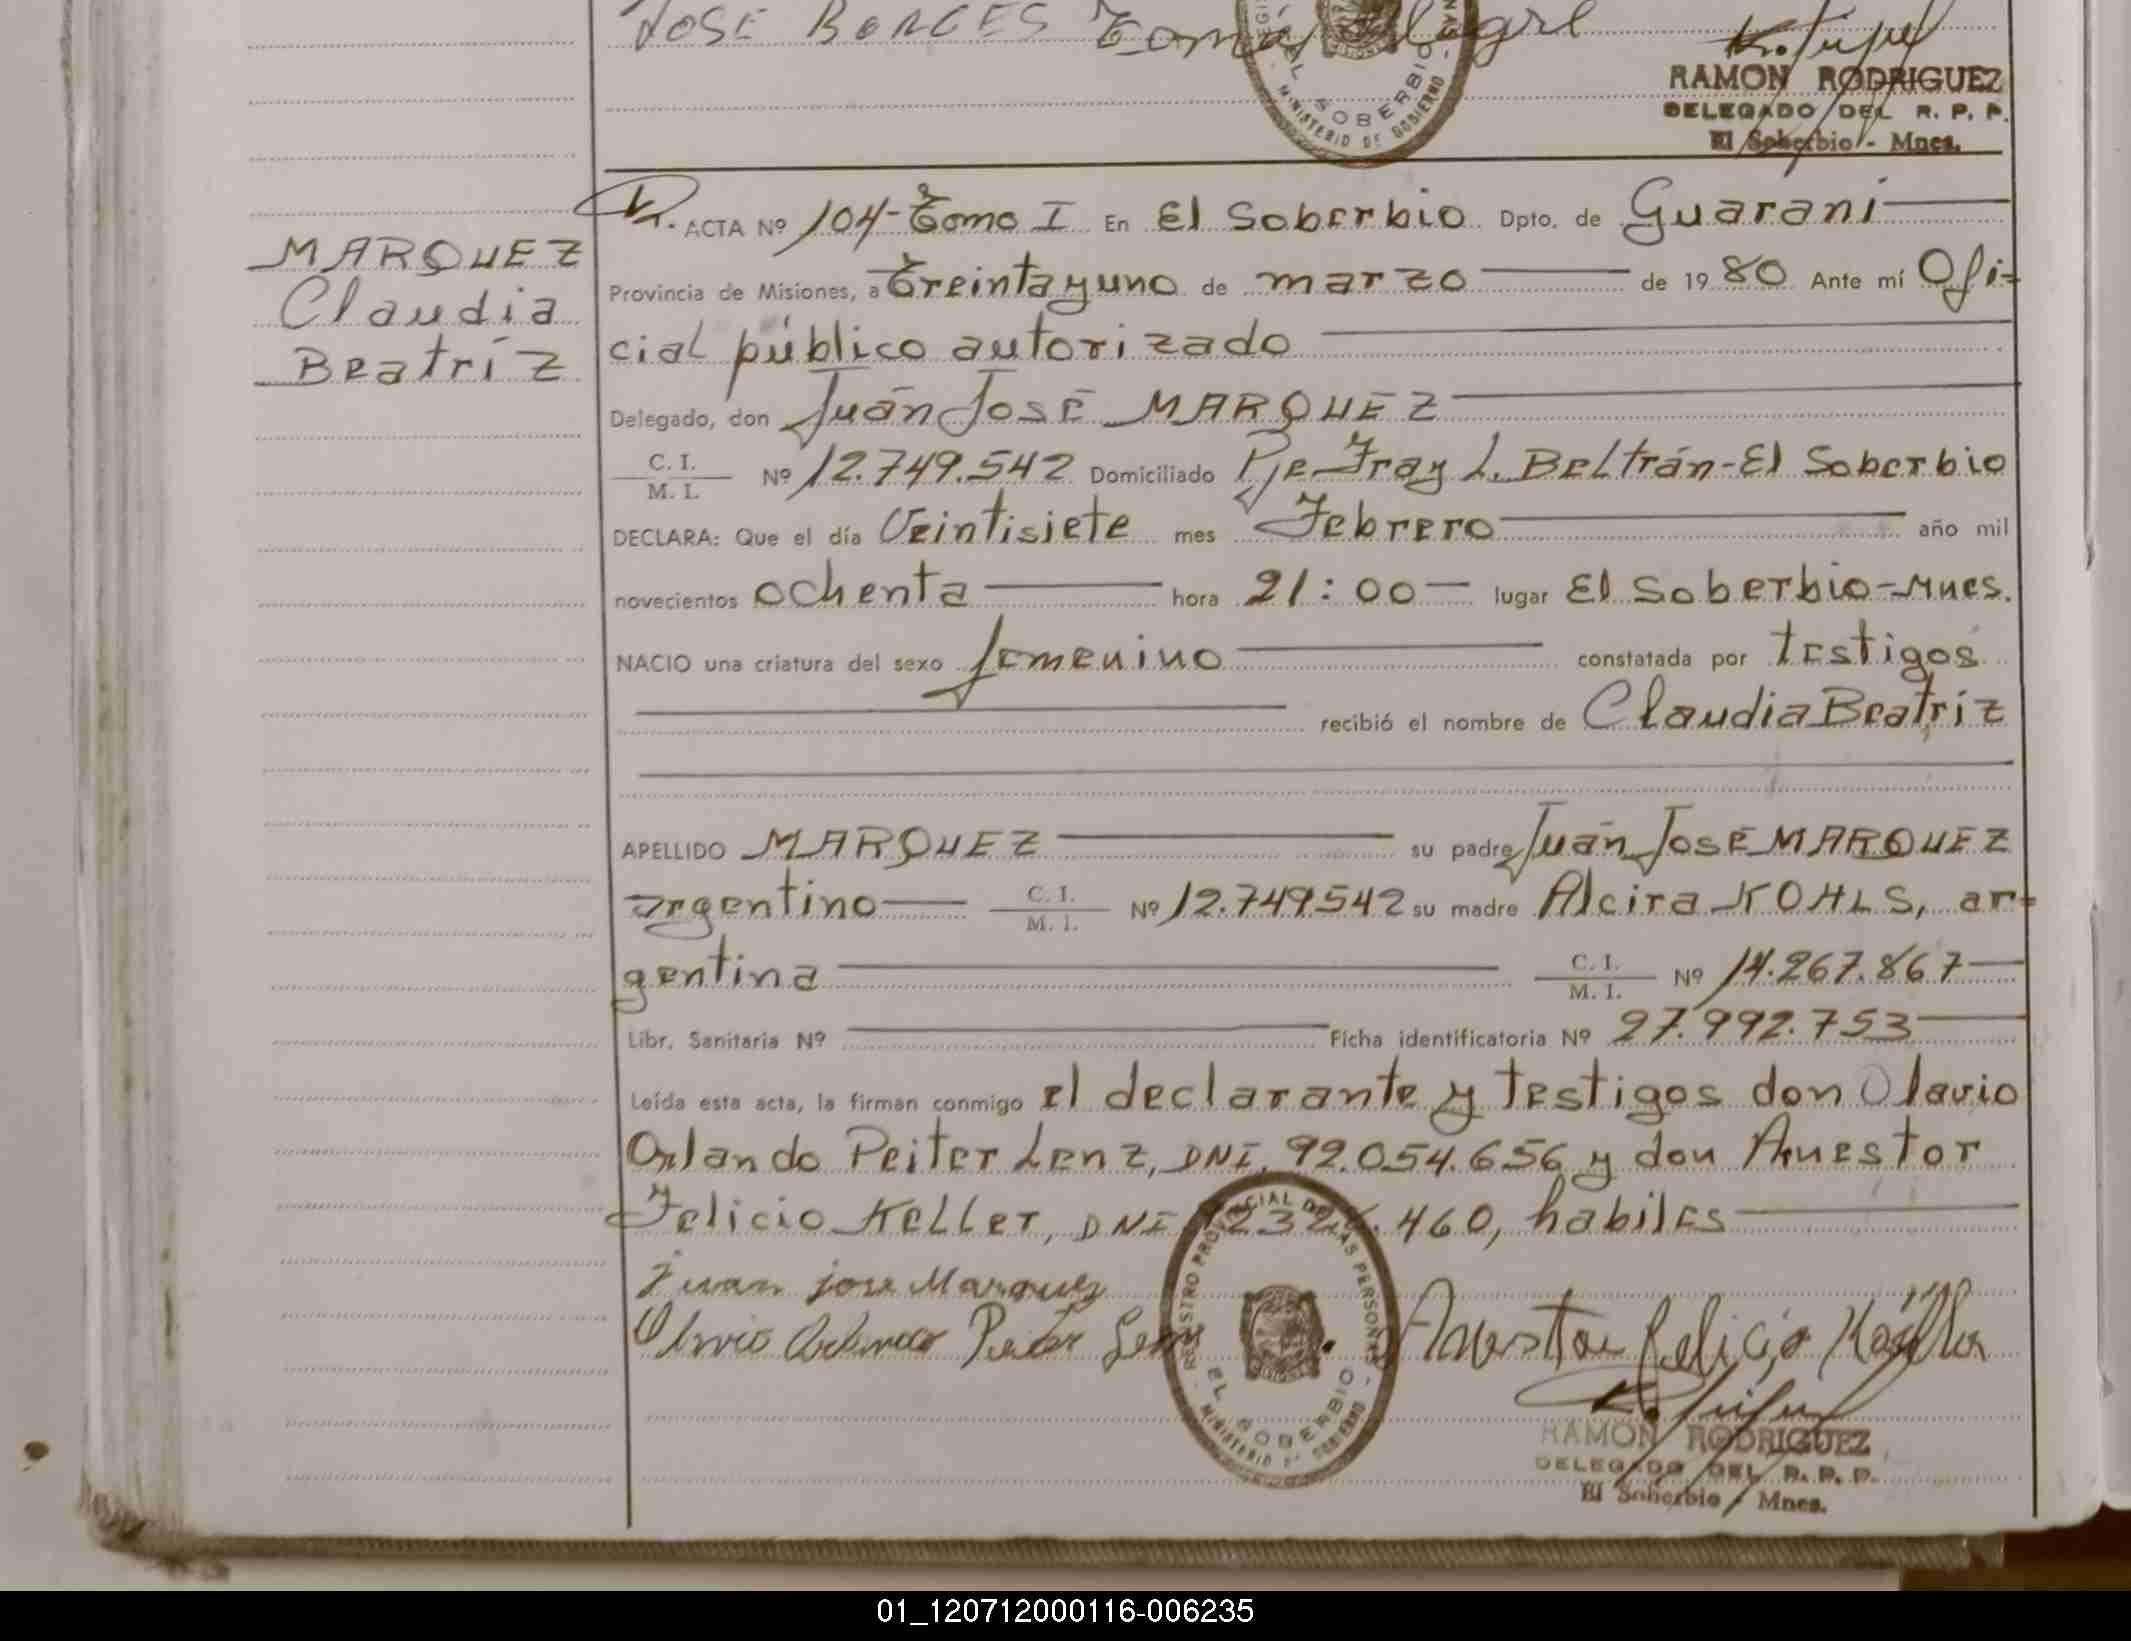 JOSE BORGES
SOBERBIO
MINISTERIO DE GOBIERNO
RAMON RODRIGUEZ
DELEGADO DEL R. P. P.
El Soberbio - Mnes.
MARQUEZ
Claudia
Beatríz
ACTA Nº 104- Tomo I En El Soberbio Dpto. de Guaraní
Provincia de Misiones, a Treinta y uno de marzo de 1980 Ante mí Ofi-
cial público autorizado
Delegado, don Juan José MARQUEZ
C. I.
M. I. Nº 12.749.542 Domiciliado Pje Fray L. Beltrán-El Soberbio
DECLARA: Que el día Veintisiete mes Febrero año mil
novecientos ochenta hora 21:00 lugar El Soberbio-Mnes.
NACIO una criatura del sexo femenino constatada por testigos
recibió el nombre de Claudia Beatríz
APELLIDO MARQUEZ su padre Juan José MARQUEZ
argentino C. I.
M. I. Nº 12.749.542 su madre Alcira KOHLS, ar-
gentina C. I.
M. I. Nº 14.267.867
Libr. Sanitaria Nº Ficha identificatoria Nº 27.992.753
Leída esta acta, la firman conmigo el declarante y testigos don Olavio
Orlando Peiter Lenz, DNI. 92.054.656 y don Anestor
Felicio Keller, DNI 460, habiles
Juan jose Marquez
REGISTRO PROVINCIAL DE LAS PERSONAS
EL SOBERBIO
MINISTERIO DE GOBIERNO
Anestor Felicio
RAMON RODRIGUEZ
DELEGADO DEL R. P. P.
El Soberbio - Mnes.
01_120712000116-006235